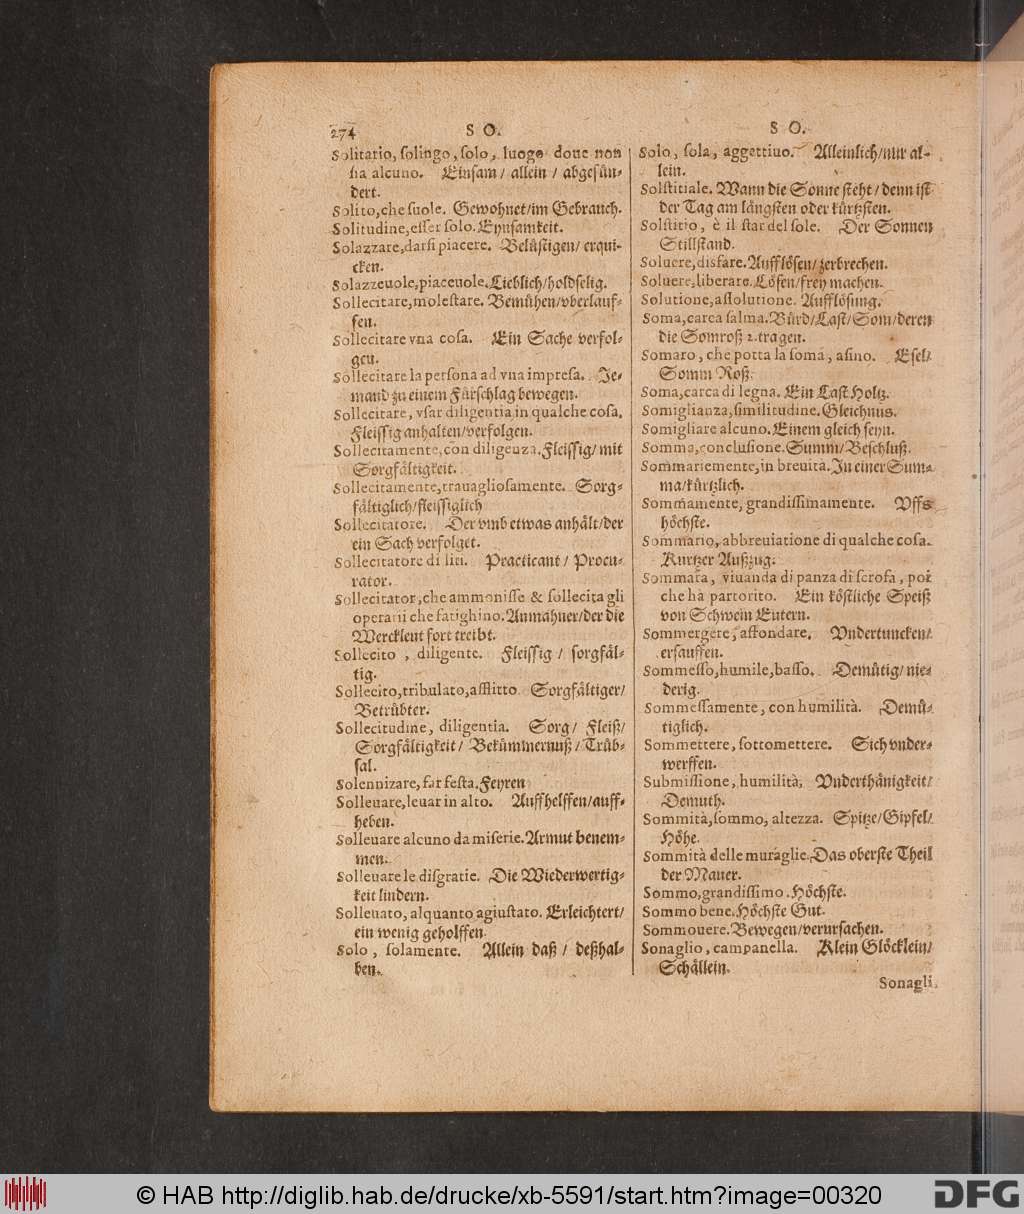 274 S O. S O.
Solitario, solingo, solo, luogo doue non
ha alcuno. Einsam / allein / abgesün-
dert.
Solito, che suole. Gewohnet/im Gebrauch.
Solitudine, esser solo. Eynsamkeit.
Solazzare, darsi piacere. Belüstigen/ erqui-
cken.
Solazzeuole, piaceuole. Lieblich/holdselig.
Sollecitare, molestare. Bemühen/vberlauf-
fen.
Sollecitare vna cosa. Ein Sache verfol-
gen.
Sollecitare la persona ad vna impresa. Je-
mand zu einem Fürschlag bewegen.
Sollecitare, vsar diligentia in qualche cosa.
Fleissig anhalten/verfolgen.
Sollecitamente, con diligenza. Fleissig/ mit
Sorgfältigkeit.
Sollecitamente, trauagliosamente. Sorg-
fältiglich/fleissiglich
Sollecitatore. Der vmb etwas anhält/der
ein Sach verfolget.
Sollecitatore di liti. Practicant / Procu-
rator.
Sollecitator, che ammonisse & sollecita gli
operarii che fatighino. Anmahner/der die
Werckleut fort treibt.
Sollecito , diligente. Fleissig / sorgfäl-
tig.
Sollecito, tribulato, afflitto Sorgfältiger/
Betrübter.
Sollecitudine, diligentia. Sorg / Fleiß/
Sorgfältigkeit/ Bekümmernuß / Trüb-
sal.
Solennizare, far festa. Feyren
Solleuare, leuar in alto. Auffhelffen/auff-
heben.
Solleuare alcuno da miserie. Armut benem-
men.
Solleuare le disgratie. Die Wiederwertig-
keit lindern.
Solleuato, alquanto agiustato. Erleichtert/
ein wenig geholffen.
Solo , solamente. Allein daß / deßhal-
ben.
Solo, sola, aggettiuo. Alleinlich/nur al-
lein.
Solstitiale. Wann die Sonne steht / denn ist
der Tag am längsten oder kürtzsten.
Solstitio, è il star del sole. Der Sonnen
Stillstand.
Soluere, disfare. Aufflösen/ zerbrechen.
Soluere, liberare. Lösen/frey machen.
Solutione, assolutione. Aufflösung.
Soma, carca salma. Bürd/Last/Som/deren
die Somroß 2. tragen.
Somaro, che potta la somá, asino. Esel/
Somm Roß.
Soma, carca di legna. Ein Last Holtz.
Somiglianza, similitudine. Gleichnus.
Somigliare alcuno. Einem gleich seyn.
Somma, conclusione. Summ/Beschluß.
Sommariemente, in breuità. In einer Sum-
ma/kürtzlich.
Som̃amente, grandissimamente. Vffs
höchste.
Sommario, abbreuiatione di qualche cosa.
Kurtzer Außzug.
Sommata, viuanda di panza di scrofa, poi
che ha partorito. Ein köstliche Speiß
von Schwein Eutern.
Sommergere, affondare. Vndertuncken/
ersauffen.
Sommesso, humile, basso. Demütig/ nie-
derig.
Sommessamente, con humilità. Demü-
tiglich.
Sommettere, sottomettere. Sich vnder-
werffen.
Submissione, humilità. Vnderthänigkeit/
Demuth.
Sommità, sommo, altezza. Spitze/Gipfel/
Höhe.
Sommità delle muraglie. Das oberste Theil
der Mauer.
Sommo, grandissimo. Höchste.
Sommo bene. Höchste Gut.
Sommouere. Bewegen/verursachen.
Sonaglio, campanella. Klein Glöcklein/
Schällein.
Sonagli.
© HAB http://diglib.hab.de/drucke/xb-5591/start.htm?image=00320
DFG